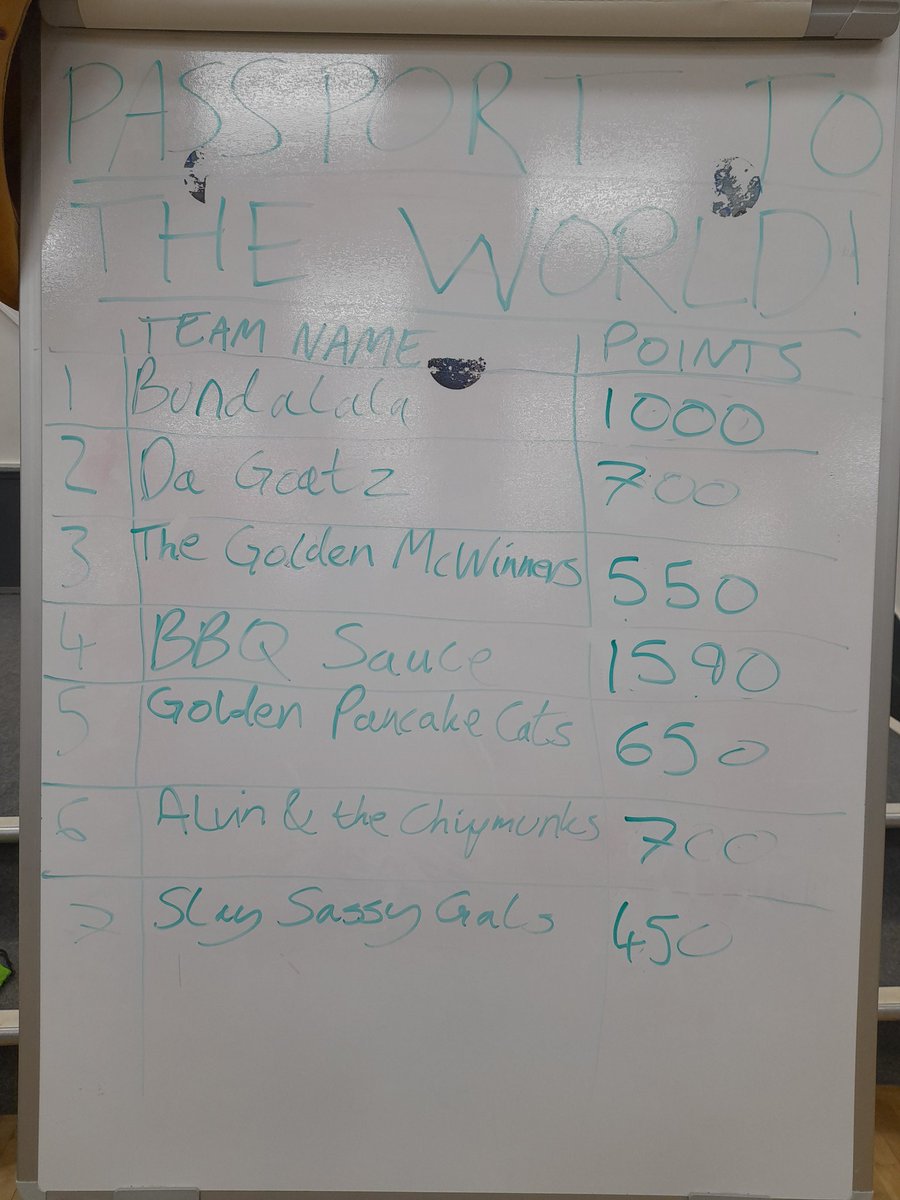 PASSPORT TO
THE WORLD!
TEAM NAME POINTS
1 Bundalala 1000
2 Da Goatz 700
3 The Golden McWinners 550
4 BBQ Sauce 1590
5 Golden Pancake Cats 650
6 Alvin & the Chipmunks 700
7 Slay Sassy Gals 450